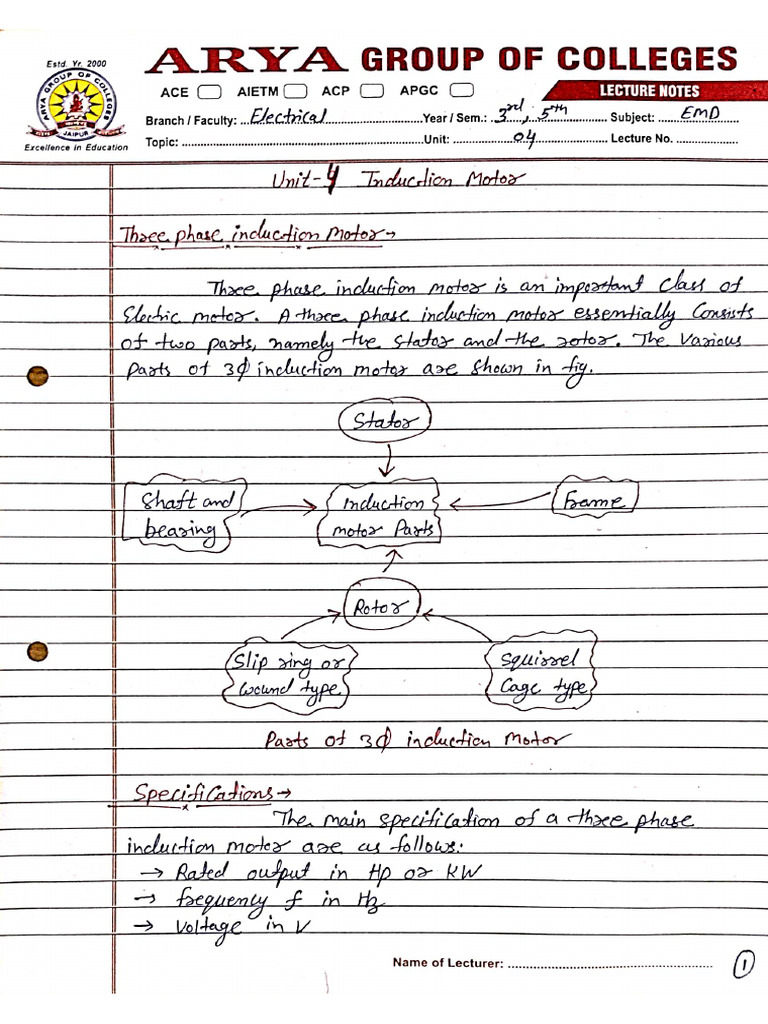 Estd. Yr. 2000
ARYA GROUP OF COLLEGES
ARYA GROUP OF COLLEGES
JAIPUR
Excellence in Education
ACE AIETM ACP APGC LECTURE NOTES
Branch / Faculty: ...Electrical......Year / Sem.: ...3rd, 5th......Subject: ...EMD...
Topic: ......Unit: ...04......Lecture No. ......
Unit-4 Induction Motor
Three phase induction motor→
Three phase induction motor is an important class of
Electric motor. A three phase induction motor essentially Consists
of two parts, namely the stator and the rotor. The various
parts of 3Φ induction motor are shown in fig.
Stator
Shaft and
bearing
Induction
motor Parts
Frame
Rotor
Slip ring or
wound type
Squirrel
Cage type
Parts of 3Φ induction Motor
Specifications→
The main specification of a three phase
induction motor are as follows:
→ Rated output in Hp or KW
→ frequency f in Hz
→ Voltage in V
Name of Lecturer: ......
1